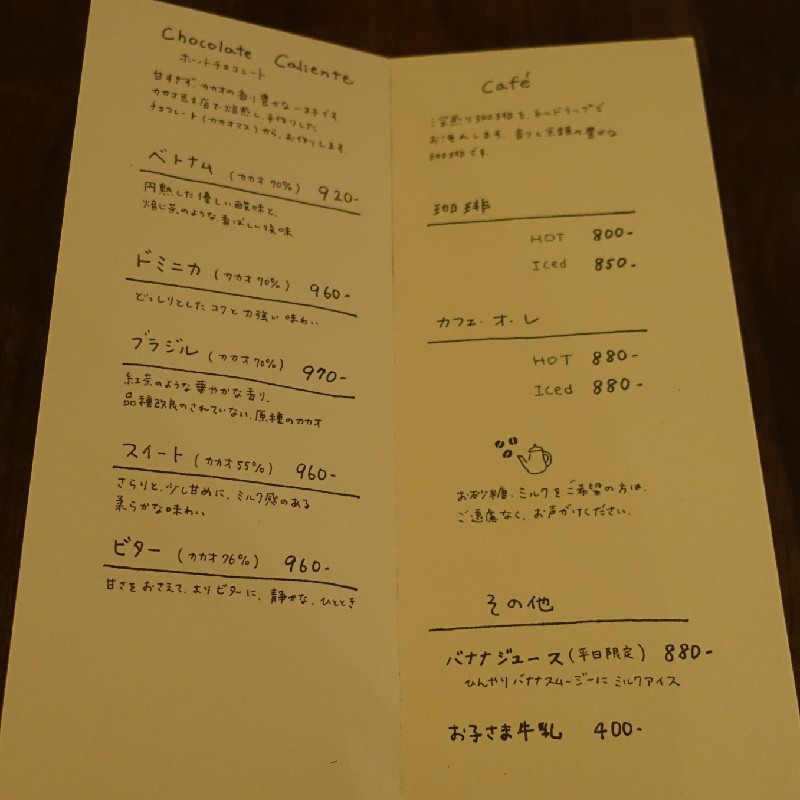 Chocolate Caliente
ホットチョコレート
甘すぎず、カカオの香り豊かな一杯です。
カカオ豆を店で焙煎し、手作りした
チョコレート(カカオマス)から、お作りします。
ベトナム (カカオ70%) 920-
円熟した優しい酸味と、
焙じ茶のような香ばしい後味
ドミニカ (カカオ70%) 960-
どっしりとしたコクと力強い味わい
ブラジル (カカオ70%) 970-
紅茶のような華やかな香り。
品種改良のされていない、原種のカカオ
スイート (カカオ55%) 960-
さらりと、少し甘めに、ミルク感のある
柔らかな味わい
ビター (カカオ76%) 960-
甘さをおさえて、よりビターに、静かな、ひととき
Café
深煎り珈琲を、ネルドリップで
お淹れします。香りと余韻の豊かな
珈琲です。
珈琲
HOT 800-
Iced 850-
カフェ・オ・レ
HOT 880-
Iced 880-
お砂糖、ミルクをご希望の方は、
ご遠慮なく、お声がけください。
その他
バナナジュース(平日限定) 880-
ひんやりバナナスムージーにミルクアイス
お子さま牛乳 400-